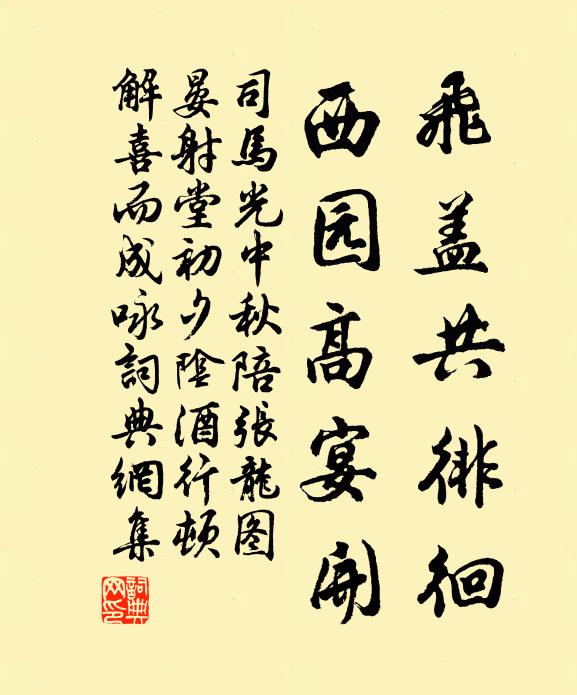 飛盖共徘徊
西园高宴開
司馬光中秋陪張龍图
晏射堂初夕陰酒行頓
解喜而成咏詞典網集
詞典网印